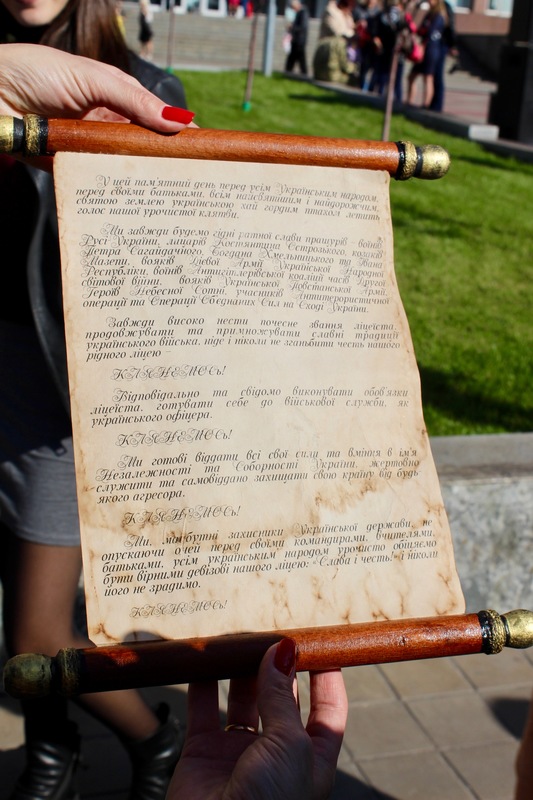 У цей пам'ятний день перед усім Українським народом,
перед своїми батьками, всім найсвятішим і найдорожчим,
святою землею українською хай гордим птахом летить
голос нашої урочистої клятви.
Ми завжди будемо гідні ратної слави пращурів - воїнів
Русі України, лицарів Костянтина Острозького, козаків
Петра Сагайдачного, Богдана Хмельницького та Івана
Мазепи, вояків Дієвої Армії Української Народної
Республіки, воїнів Антигітлерівської коаліції часів Другої
світової війни, вояків Української Повстанської Армії,
Героїв Небесної Сотні, учасників Антитерористичної
операції та Операції Об'єднаних Сил на Сході України.
Завжди високо нести почесне звання ліцеїста,
продовжувати та примножувати славні традиції
українського війська, ніде і ніколи не зганьбити честь нашого
рідного ліцею –
КЛЯНЕМОСЬ!
Відповідально та свідомо виконувати обов'язки
ліцеїста, готувати себе до військової служби, як
українського офіцера.
КЛЯНЕМОСЬ!
Ми готові віддати всі свої сили та вміння в ім'я
Незалежності та Соборності України, жертовно
служити та самовіддано захищати свою країну від будь
якого агресора.
КЛЯНЕМОСЬ!
Ми, майбутні захисники Української держави, не
опускаючи очей перед своїми командирами, вчителями,
батьками, усім українським народом урочисто обіцяємо
бути вірними девізові нашого ліцею: «Слава і честь!» й ніколи
його не зрадимо.
КЛЯНЕМОСЬ!